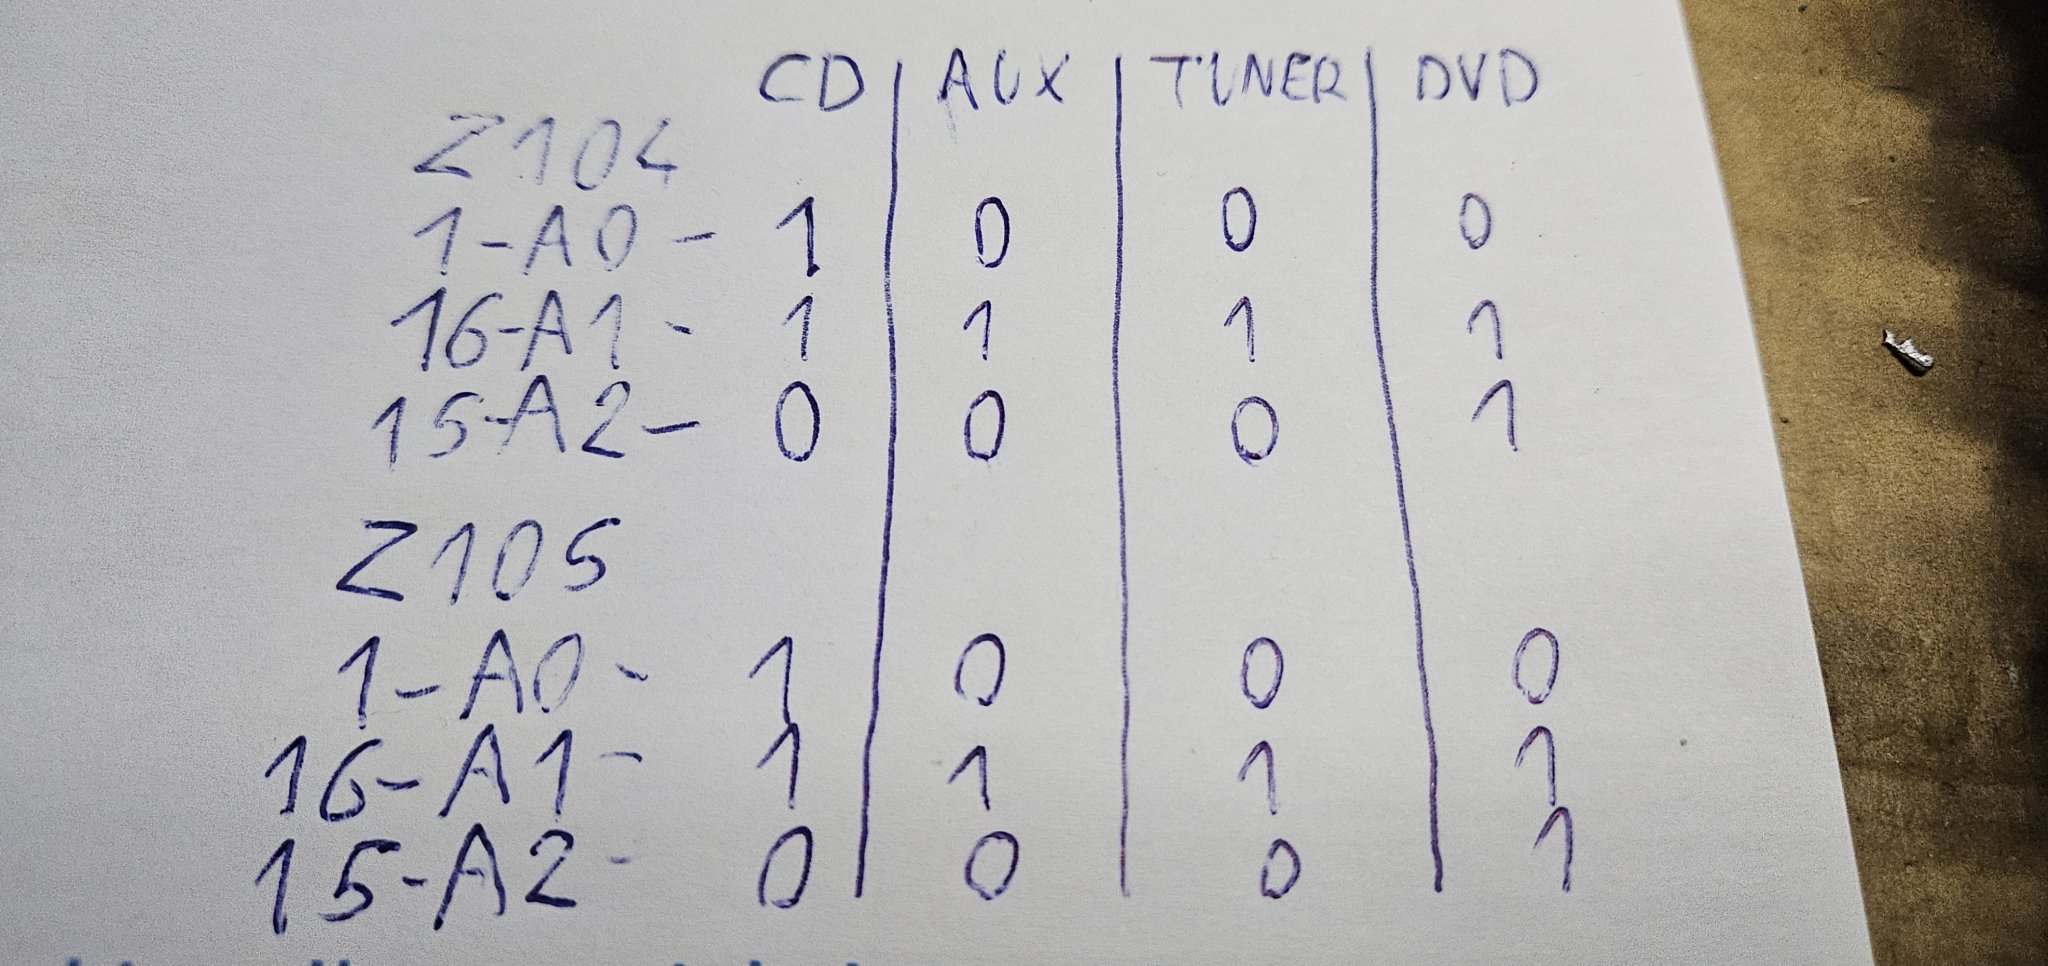 CD | AUX | TUNER | DVD
Z104
1-A0- 1 | 0 | 0 | 0
16-A1- 1 | 1 | 1 | 1
15-A2- 0 | 0 | 0 | 1
Z105
1-A0- 1 | 0 | 0 | 0
16-A1- 1 | 1 | 1 | 1
15-A2- 0 | 0 | 0 | 1